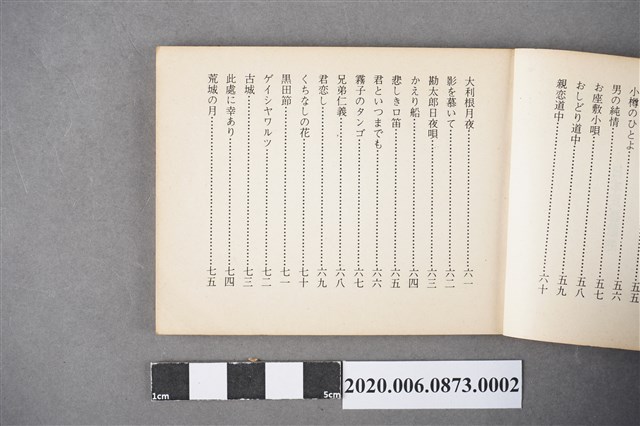 小樽のひとよ………五五
男の純情………五六
お座敷小唄………五七
おしどり道中………五八
親恋道中………五九
六十
大利根月夜………六一
影を慕いて………六二
勘太郎月夜唄………六三
かえり船………六四
悲しき口笛………六五
君といつまでも………六六
霧子のタンゴ………六七
兄弟仁義………六八
君恋し………六九
くちなしの花………七十
黒田節………七一
ゲイシヤワルツ………七二
古城………七三
此處に幸あり………七四
荒城の月………七五
1cm
5cm
2020.006.0873.0002